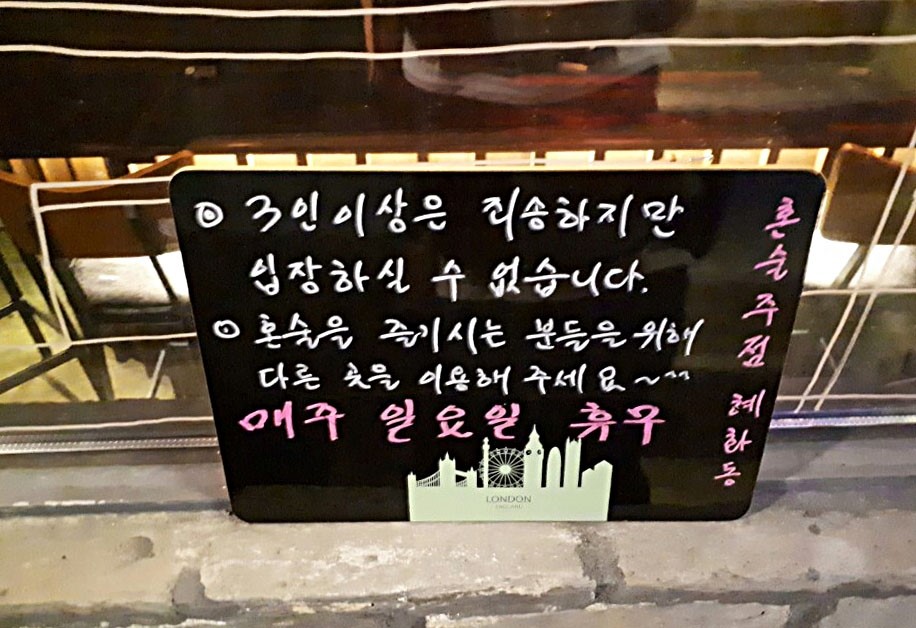 ◎ 3인 이상은 죄송하지만
입장하실 수 없습니다.
◎ 혼술을 즐기시는 분들을 위해
다른 곳을 이용해 주세요~^^
매주 일요일 휴무
혼술주점 혜화동
LONDON
ENGLAND